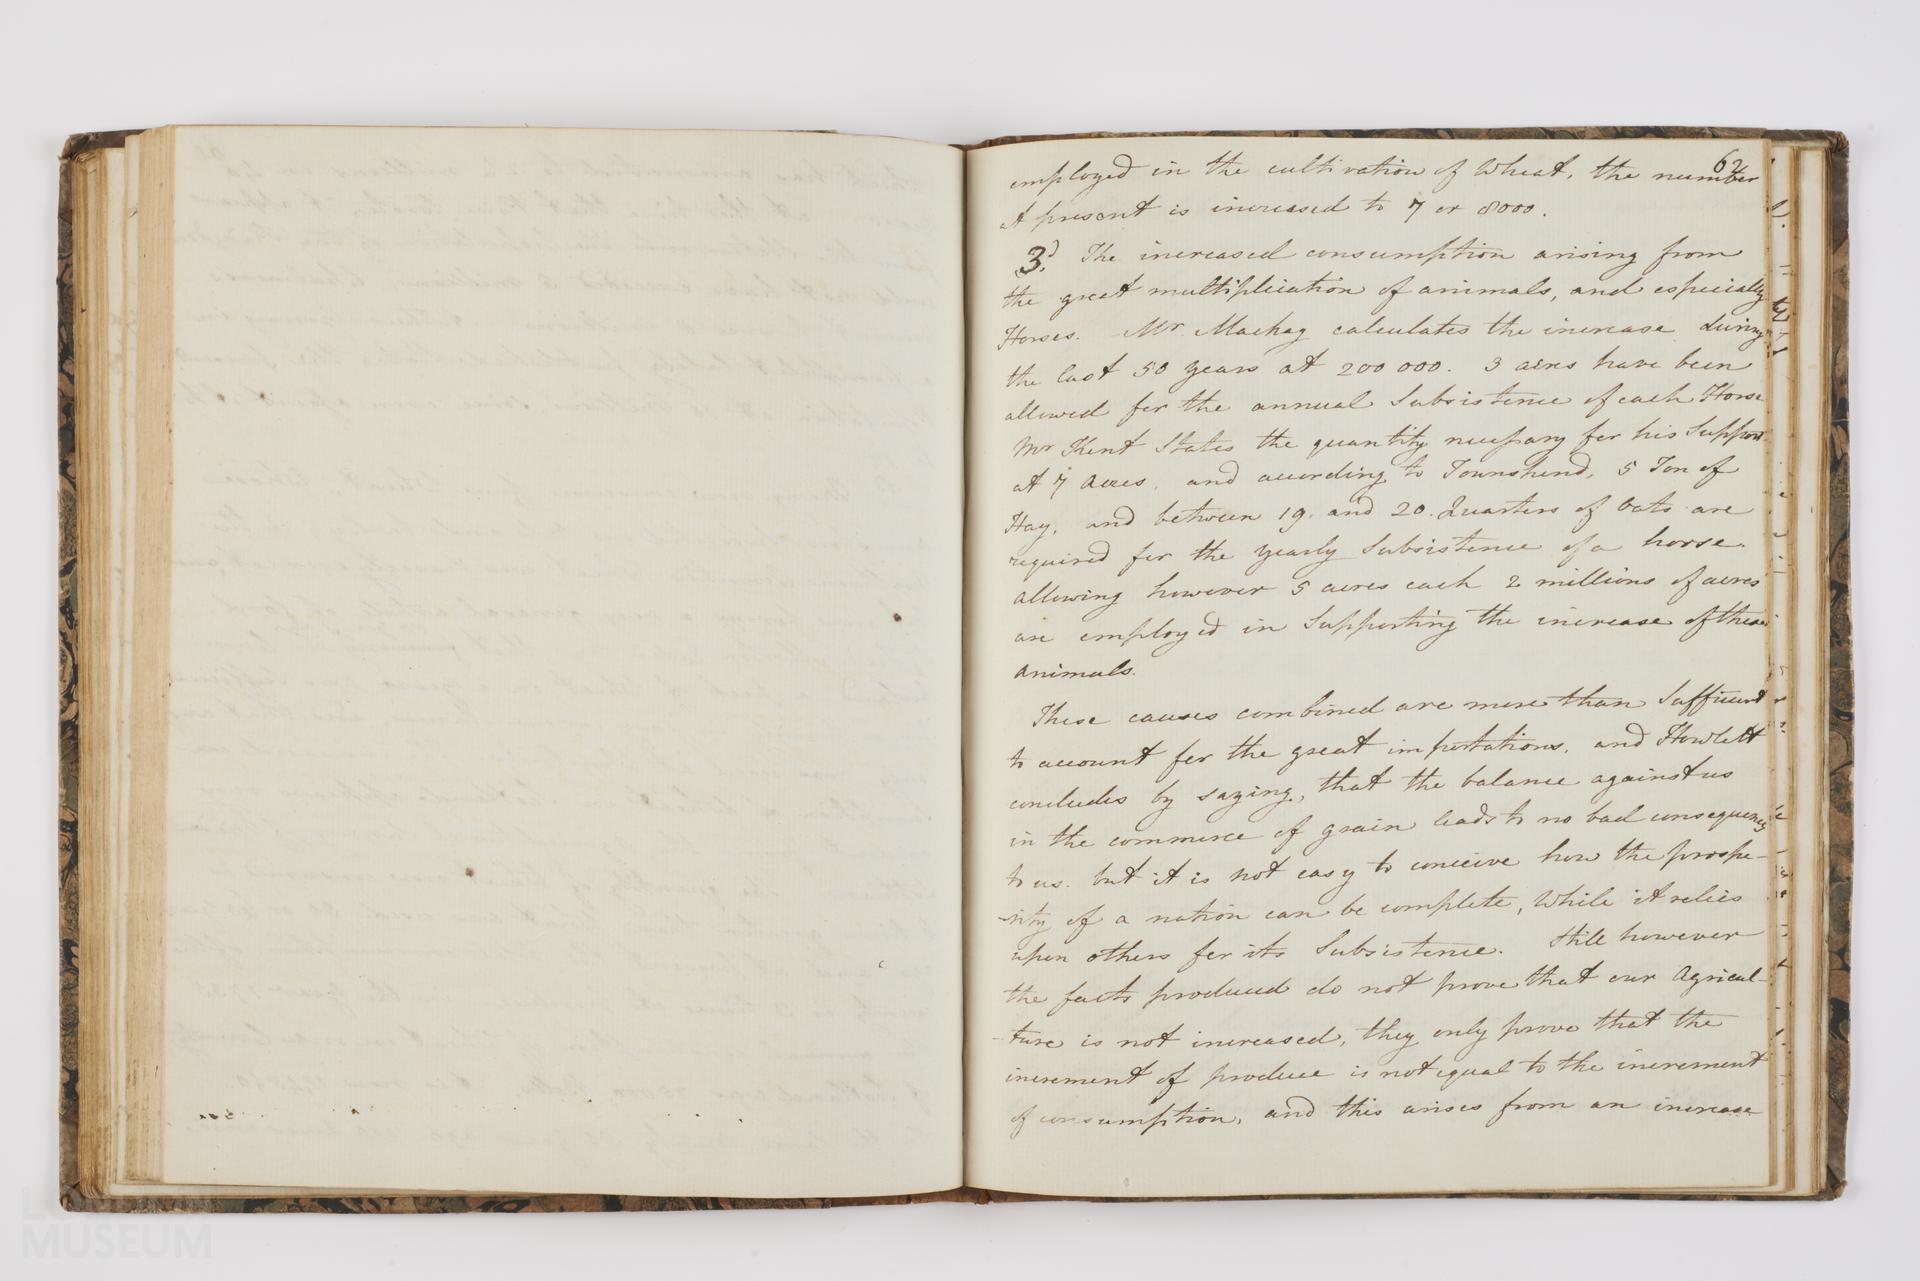 62
employed in the cultivation of Wheat, the number
at present is increased to 7 or 8000.
3d. The increased consumption arising from
the great multiplication of animals, and especially
Horses. Mr. Mackay calculates the increase during
the last 50 years at 200 000. 3 acres have been
allowed for the annual Subsistence of each Horse
Mr Kent States the quantity necessary for his Support
at 7 Acres, and according to Townshend, 5 Ton of
Hay, and between 19. and 20. Quarters of Oats are
required for the yearly Subsistence of a horse.
allowing however 5 acres each 2 millions of acres
are employed in Supporting the increase of these
animals.
These causes combined are more than Sufficient
to account for the great importations, and Howlett
concludes by saying, that the balance against us
in the commerce of grain leads to no bad consequence
to us. but it is not easy to conceive how the prospe-
-rity of a nation can be complete, While it relies
upon others for its Subsistence. Still however
the facts produced do not prove that our Agricul-
-ture is not increased, they only prove that the
increment of produce is not equal to the increment
of consumption, and this arises from an increase
MUSEUM